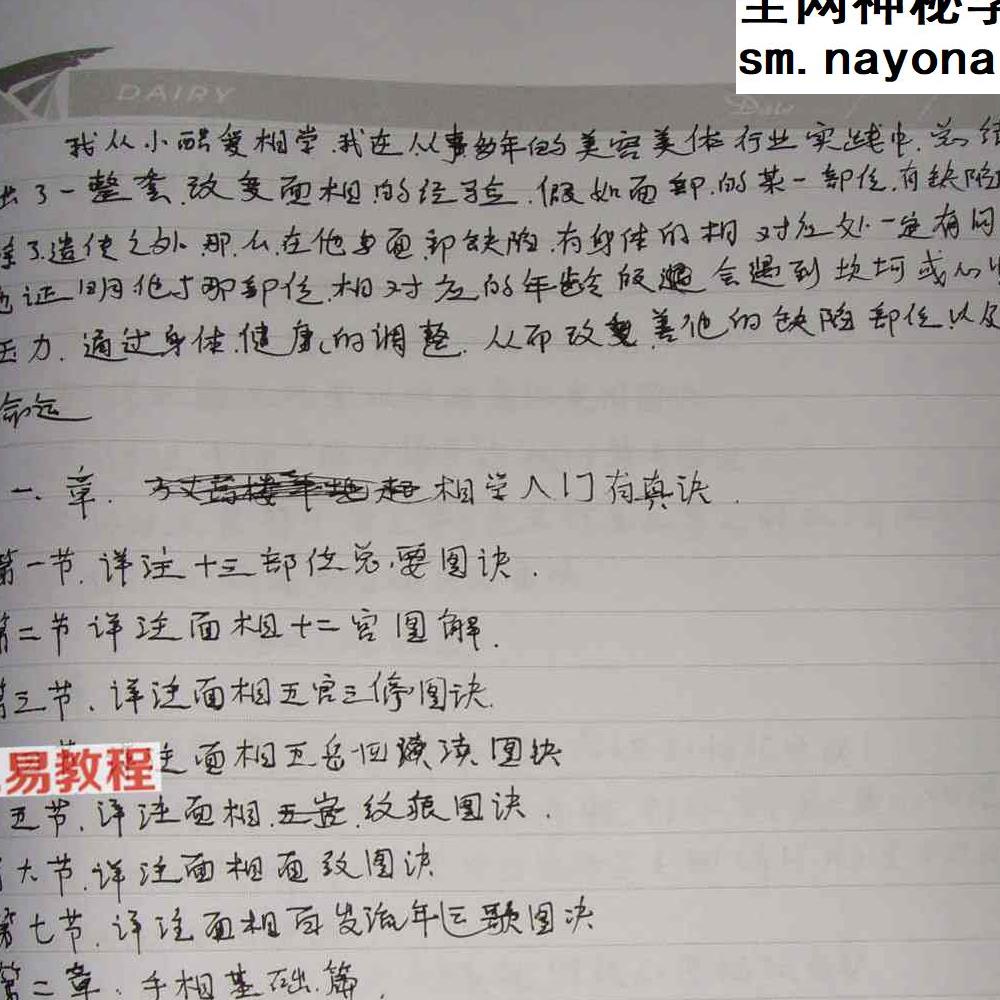 全网神秘学
sm.nayona
DAIRY
我从小酷爱相学,我在从事多年的美容美体行业实践中,总结
出了一整套改变面相的经验.假如面部的某一部位,有缺陷
除了遗传之外,那么在他与面部缺陷有身体的相对应处一定有问
也证明他与那部位相对应的年龄段 会遇到坎坷或心
压力.通过身体健康的调整.从而改善他的缺陷部位以及
命运
一.章. 相学入门有真诀.
第一节.详注十三部位总要图诀.
第二节详注面相十二宫图解.
第三节.详注面相五官三停图诀.
易教程
注面相五岳四渎图诀
五节.详注面相.纹痕图诀.
六节.详注面相面纹图诀
第七节.详注面相百岁流年运歌图决
第二章.手相基础篇.